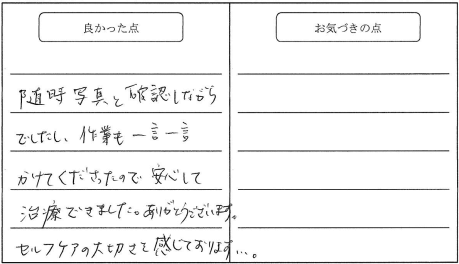 良かった点
お気づきの点
随時写真と確認しながら
でしたし、作業も一言一言
かけてくださったので安心して
治療できました。ありがとうございます。
セルフケアの大切さを感じております…。